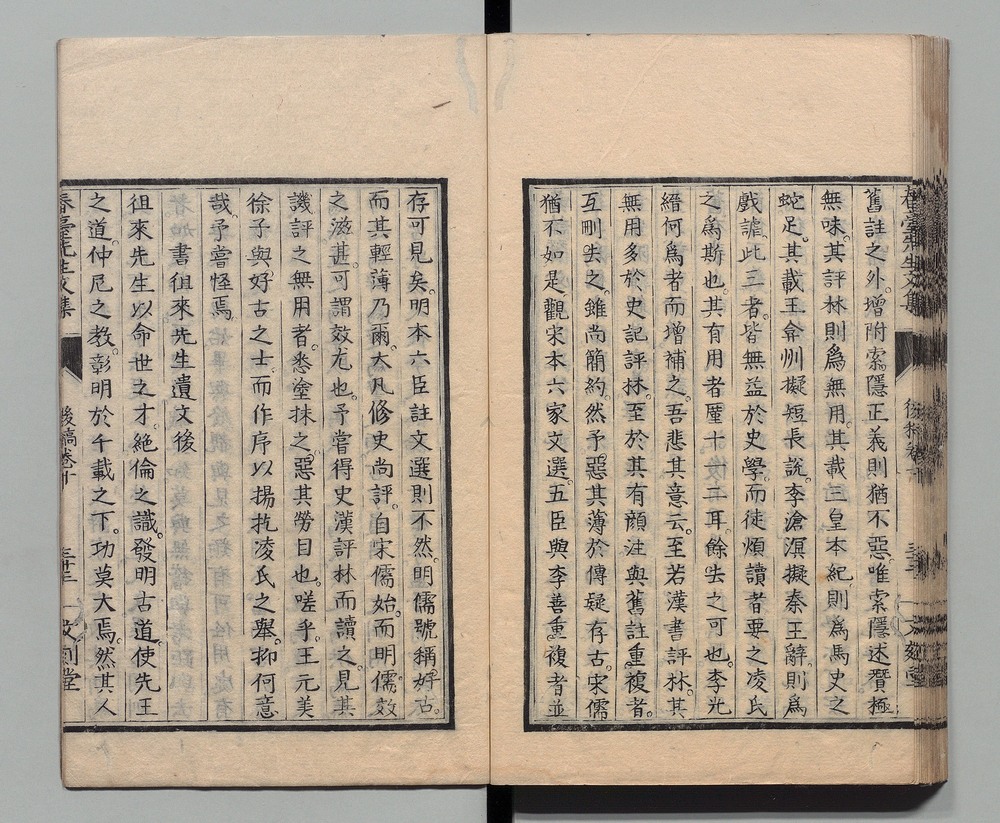 舊註之外。增附索隱正義則猶不惡。唯索隱述贊極
無味。其評林則爲無用。其載三皇本紀。則爲馬史之
蛇足。其載王弇州擬短長說。李滄溟擬秦王辭。則爲
戲謔此三者。皆無益於史學。而徒煩讀者。要之凌氏
之爲斯也。其有用者厪十一二耳。餘去之可也。李光
縉何爲者而增補之。吾悲其意云。至若漢書評林。其
無用多於史記評林。至於其有顏注與舊註重複者。
互刪去之。雖尚簡約。然予惡其薄於傳疑存古。宋儒
猶不如是觀宋本六家文選。五臣與李善重複者並
存可見矣。明本六臣註文選則不然。明儒號稱好古。
而其輕薄乃爾。大凡修史尚評。自宋儒始。而明儒效
之滋甚。可謂效尤也。予嘗得史漢評林而讀之。見其
譏評之無用者。悉塗抹之。惡其勞目也。嗟乎。王元美
徐子與好古之士。而作序以揚扢凌氏之舉。抑何意
哉。予嘗怪焉。
書徂來先生遺文後
徂來先生以命世之才。絕倫之識。發明古道。使先王
之道。仲尼之教。彰明於千載之下。功莫大焉。然其人
春臺先生文集 後稿卷十 三十三